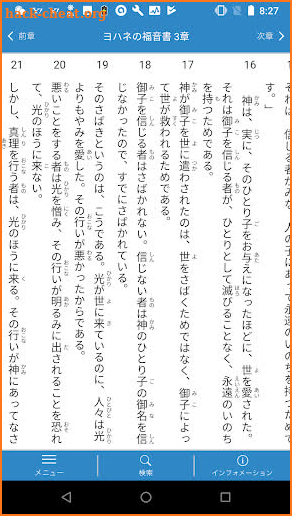 8:27
前章 ヨハネの福音書 3章 次章
す。」
16 神は、実に、そのひとり子をお与えになったほどに、世を愛された。
それは御子を信じる者が、ひとりとして滅びることなく、永遠のいのち
を持つためである。
17 神が御子を世に遣わされたのは、世をさばくためではなく、御子によっ
て世が救われるためである。
18 御子を信じる者はさばかれない。信じない者は神のひとり子の御名を信
じなかったので、すでにさばかれている。
19 そのさばきというのは、こうである。光が世に来ているのに、人々は光
よりもやみを愛した。その行いが悪かったからである。
20 悪いことをする者は光を憎み、その行いが明るみに出されることを恐れ
て、光のほうに来ない。
21 しかし、真理を行う者は、光のほうに来る。その行いが神にあってなさ
メニュー 検索 インフォメーション